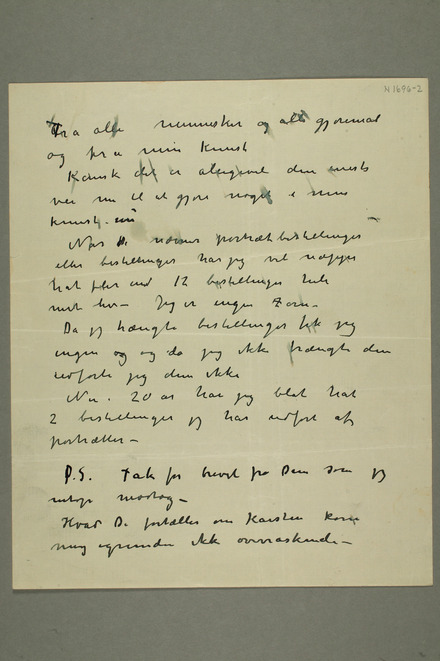 N 1696-2
Fra alle mennesker og alle gjøremål
og fra min kunst
Kanske det er alligevel den eneste
vei nu til at gjøre noget i min
kunst. nu
Når De nævner portrætbestillinger –
eller bestillinger har jeg vel neppe
hat fler end 12 bestillinger hele
mit liv – Jeg er ingen Zorn –
Da jeg trængte bestillinger fik jeg
ingen og og da jeg ikke trængte dem
udførte jeg dem ikke
Nu 20 år har jeg blot hat
2 bestillinger jeg har udført af
portrætter –
P.S. Tak for brevet fra Dem som jeg
netop modtog –
Hvad De fortæller om Karsten kom
mig egentlig ikke overraskende –